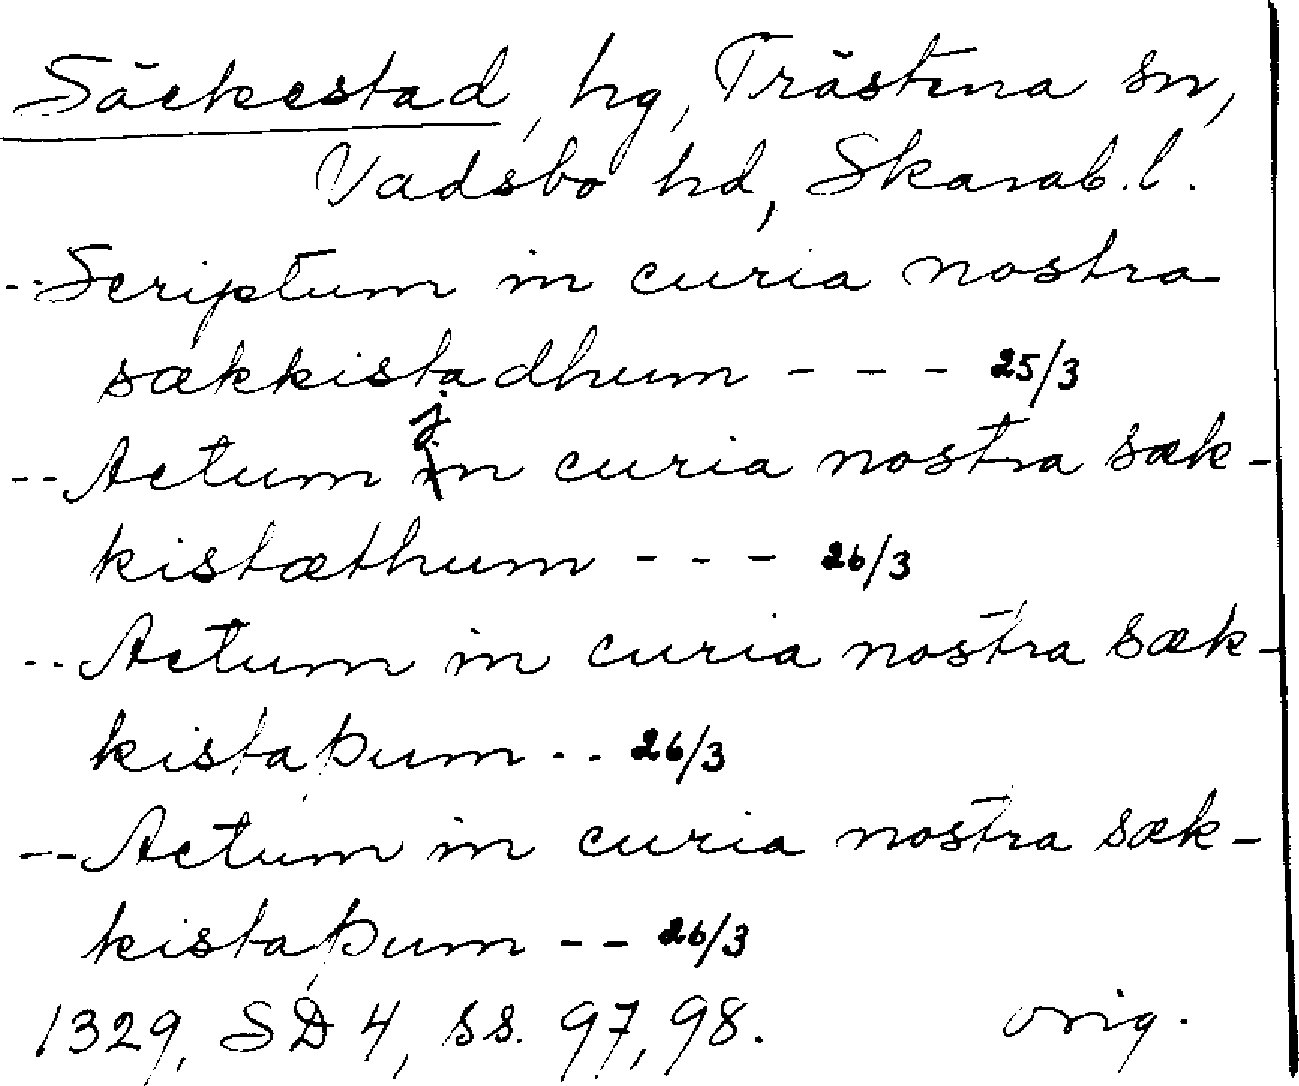 Säckestad, hg, Trästena sn,
Vadsbo hd, Skarab.l.
--Scriptum in curia nostra
sækkistadhum - - - 25/3
--Actum jn curia nostra sæk-
kistæthum - - - 26/3
--Actum in curia nostra sæk-
kistaþum -- 26/3
--Actum in curia nostra sæk-
kistaþum -- 26/3
1329, SD 4, ss. 97, 98. orig.